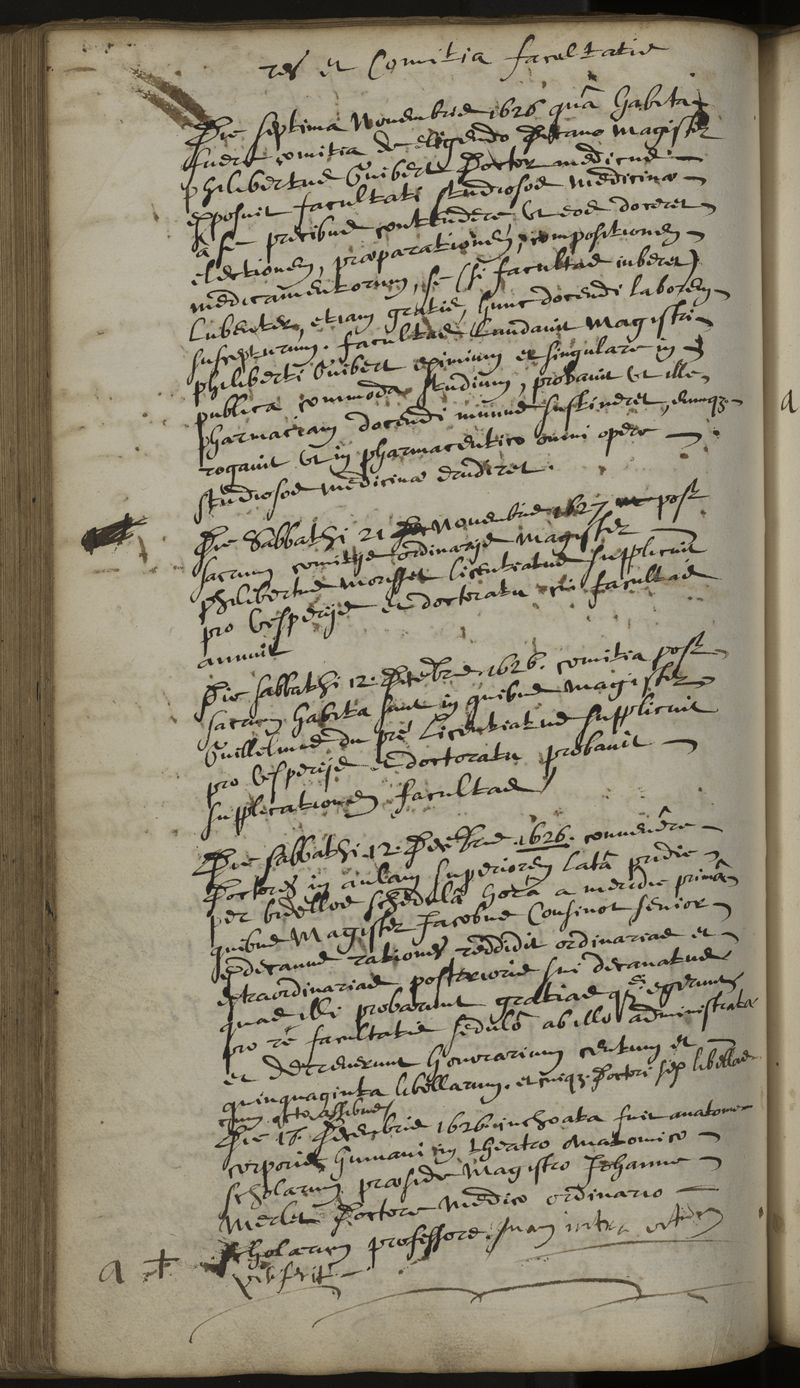 res et Comitia facultatis
Die septima Novembris 1626 quâ habita
fuere comitia de eligendo Decano Magister
philibertus Guibert Doctor medicus
exposuit facultati studiosos medicinæ
à se precibus contendere ut eos doceret
electionem, præparationem, compositionem
medicamentorum, se (si facultas iuberet)
lubenter, etiam gratis, hunc docendi laborem
suscepturum. facultas Laudavit Magistri
philiberti Guibert eximium et singulare in
publica commoda studium, probavit ut ille
pharmaciam docendi munus sustineret, eumqz
rogavit ut in pharmaceutico omni opere
studiosos medicinæ erudiret.
Die Sabbathi 21 Novembris 1627 post
sacrum comitijs ordinarijs Magister
philibertus Morisset licentiatus supplicuit
pro Vesperijs et doctoratu cui facultas
annuit
Die sabbathi 12. Decebris 1626. comitia post
sacrum habita sunt in quibus Magister
Guillelmus du pré Licentiatus supplicuit
pro Vesperijs et doctoratu probavit
supplicationem facultas
Die sabbathi 12. Decebris 1626. convenêre
Doctores in aulam superiorem latâ pridie
per bidellos schedulâ horâ a meridie primâ
quibus Magister Jacobus Cousinot senior
exdecanus rationes reddidit ordinarias et
extraordinarias posterioris sui decanatus
quas illi probarunt gratias qz egerunt
pro re facultatis sedulò ab illo administrata
et decreverunt honorarium centum et
quinquaginta libellarum. et cuiqz Doctori sex libellas
cum octo assibus
Die 17. Decembris 1626. inchoata fuit anatome
corporis humani in theatro anatomico
scholarum præside Magistro Johanne
Merlet Doctore Medico ordinario
scholarum professore. quam intra
a +